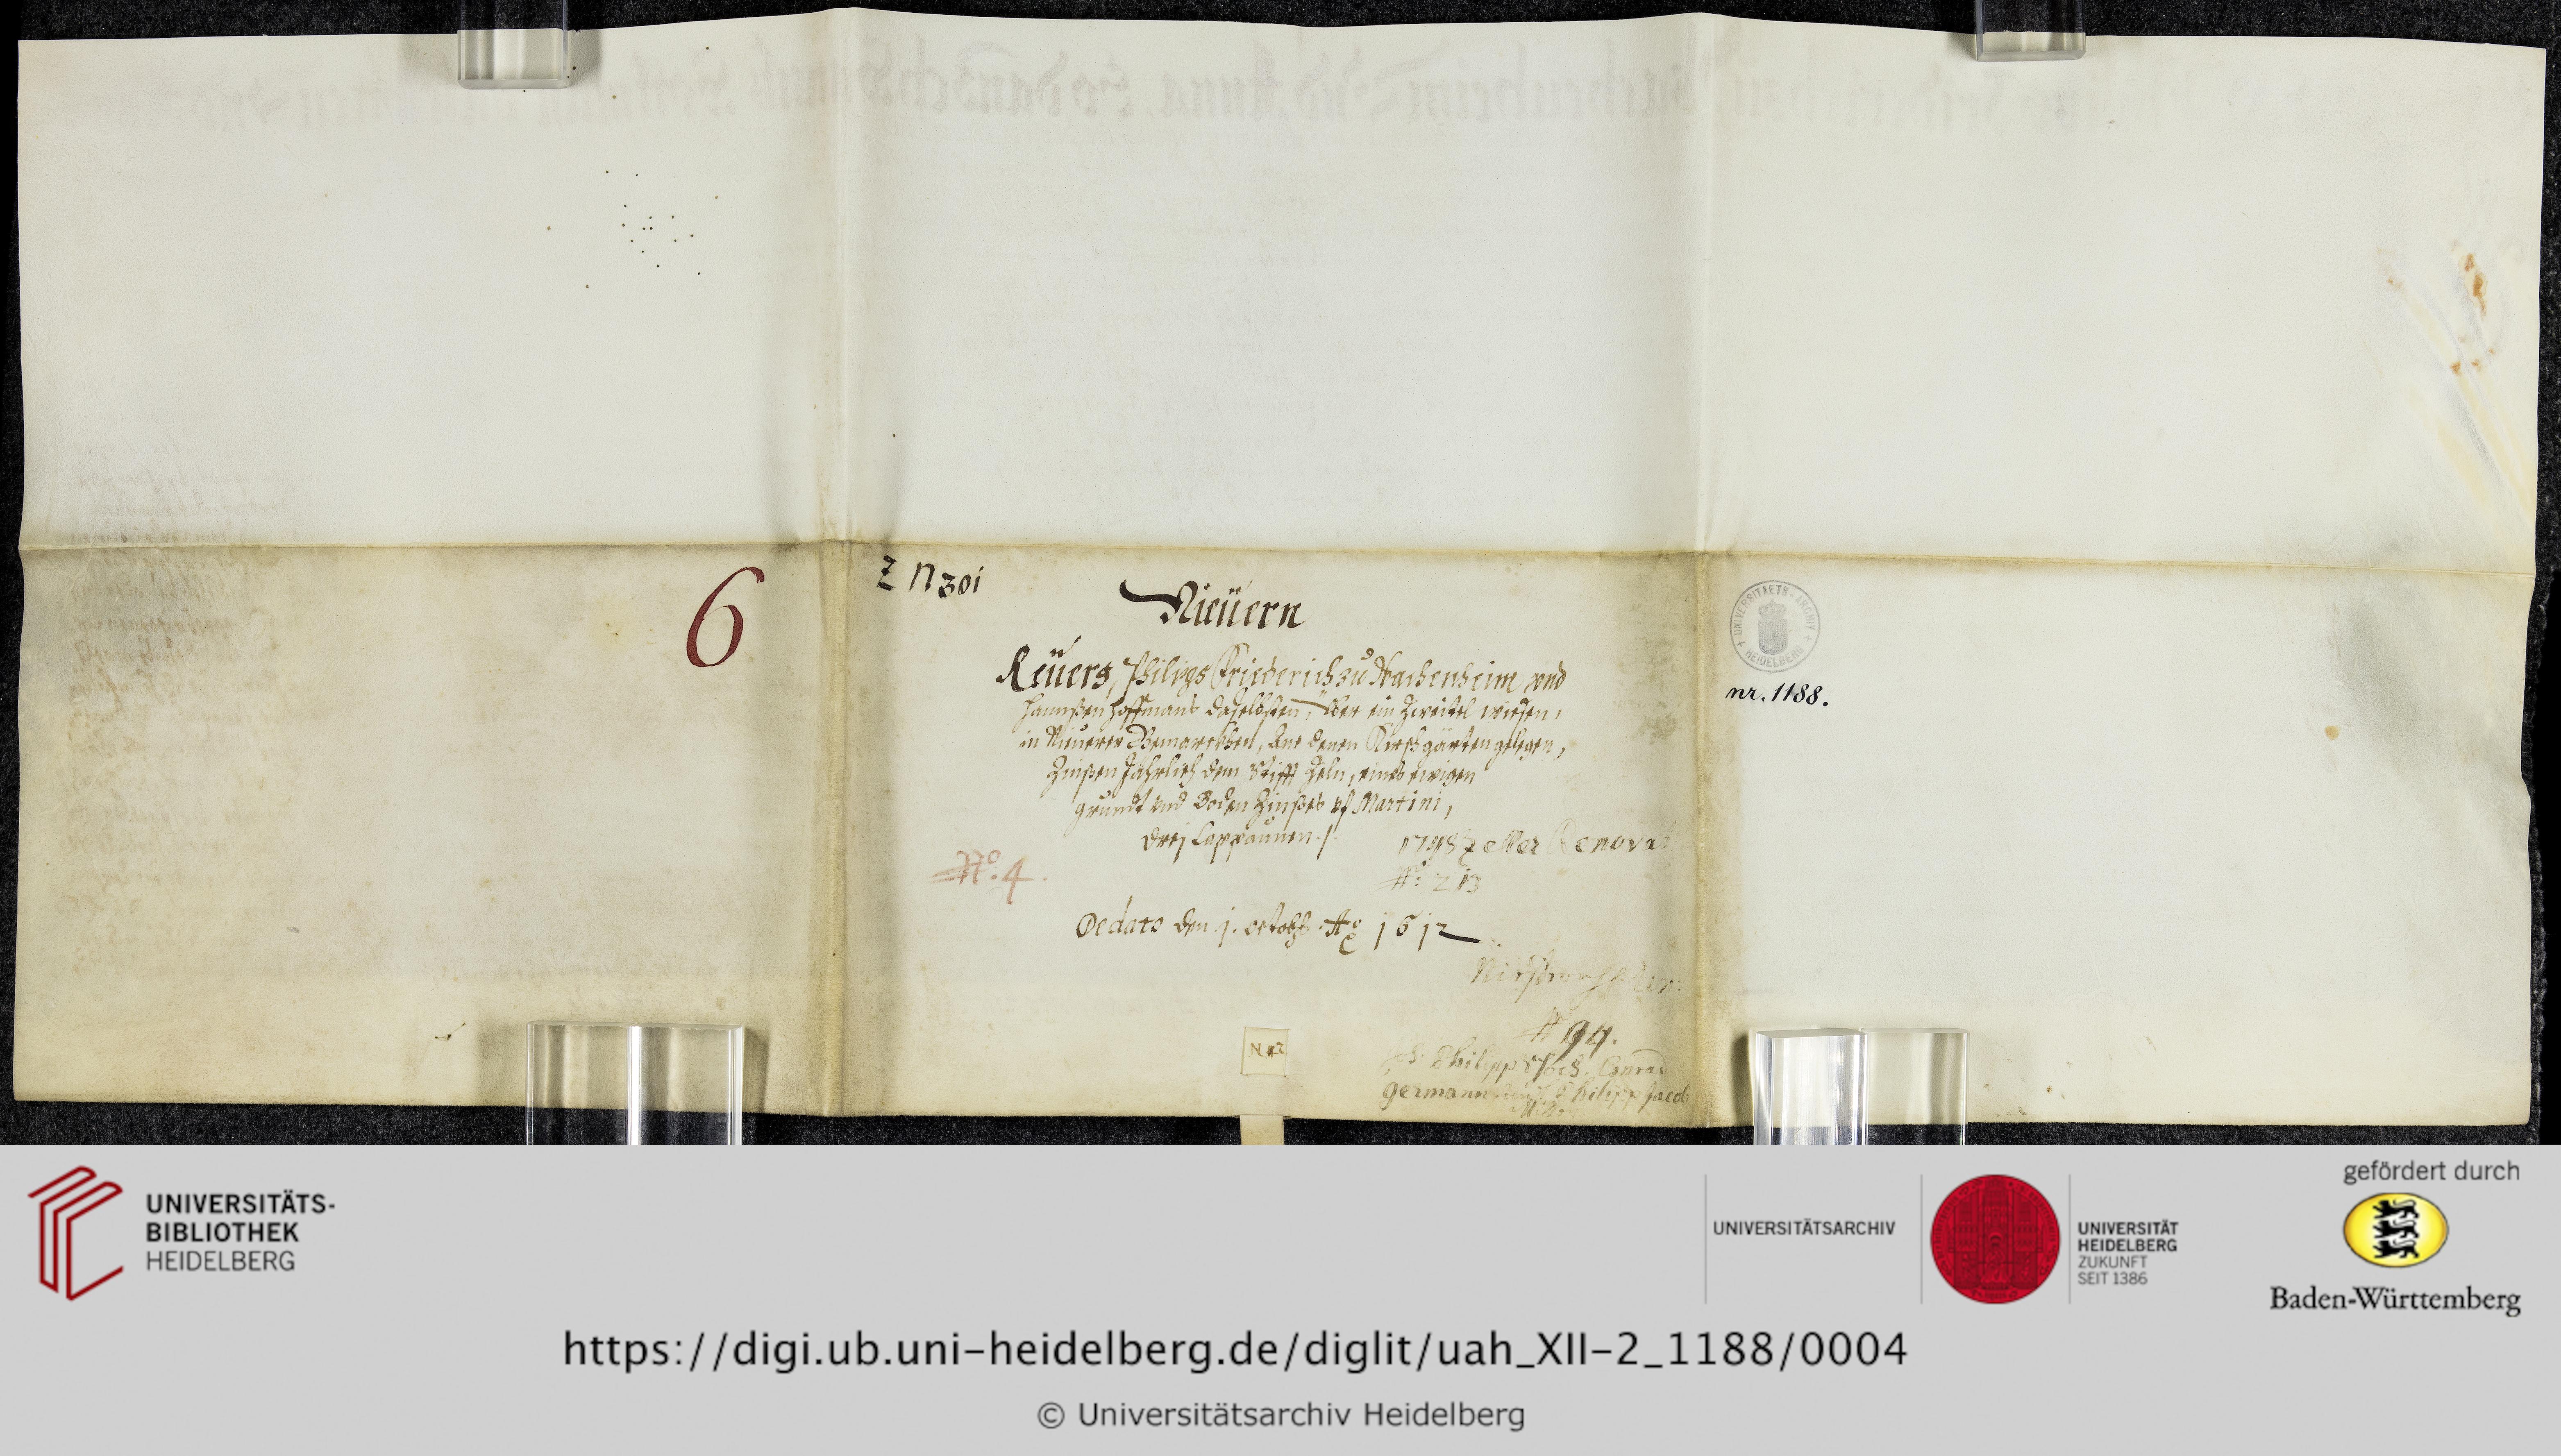 Z N 301
6
Nieüern
Reüers, Philips Friederich zu Wachenheim vnd
Hannßen Hoffmans daselbsten, über ein Zweitel wiesen,
in Nieuerer Gemarckhen, Ane denen Kirschgärten gelegen,
Zinßen Jährlich dem Stifft Zeln, eines ewigen
grundt vnd Boden Zinßes vf Martini,
drej Cappaunen ./.
1798 Zeller Renovat
No. 213
No. 4.
De dato den 1. octobs Ao 1612
# 94.
Philipp Conrad
germann Philipp Jacob
UNIVERSITAETS-ARCHIV
HEIDELBERG
nr. 1188.
UNIVERSITÄTS-
BIBLIOTHEK
HEIDELBERG
UNIVERSITÄTSARCHIV
UNIVERSITÄT
HEIDELBERG
ZUKUNFT
SEIT 1386
gefördert durch
Baden-Württemberg
https://digi.ub.uni-heidelberg.de/diglit/uah_XII-2_1188/0004
© Universitätsarchiv Heidelberg